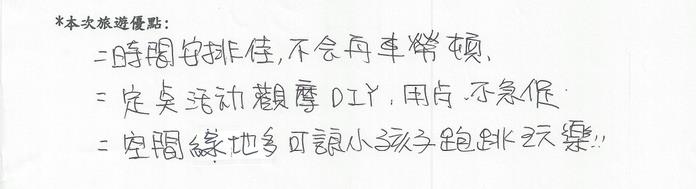 *本次旅遊優點:
=時間安排佳,不会再車勞頓、
=定點活动觀摩DIY,用占、不急促.
=空間綠地多可讓小孩子跑跳玩樂!!